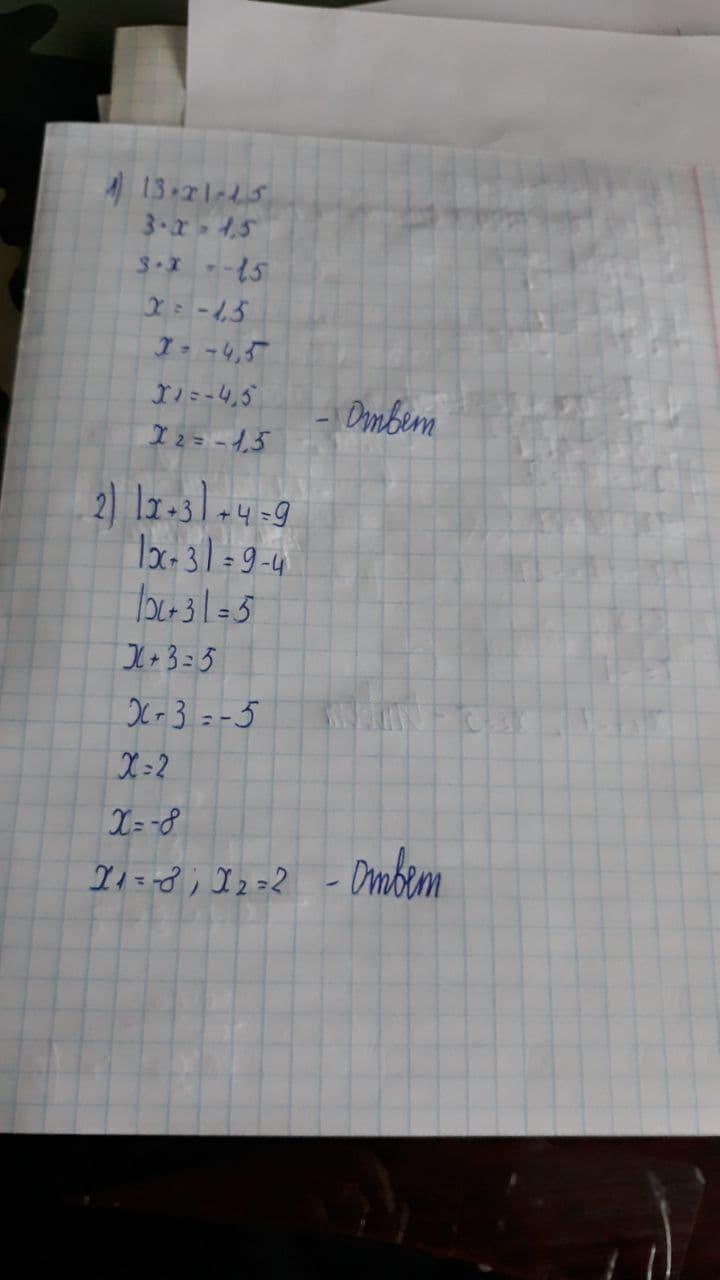 1) |3+x|=1,5
3+x=1,5
3+x =-1,5
x=-1,5
x=-4,5
x1=-4,5
x2=-1,5 - Ответ
2) |x+3|+4=9
|x+3|=9-4
|x+3|=5
x+3=5
x+3=-5
x=2
x=-8
x1=-8; x2=2 - Ответ